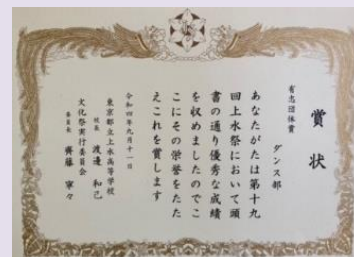 賞状
有志団体賞
ダンス部
あなたがたは第十九
回上水祭において頭
書の通り優秀な成績
を収めましたのでこ
こにその栄誉をたた
えこれを賞します
令和四年九月十一日
東京都立上水高等学校
校長 渡邉 和己
文化祭実行委員会
委員長 齊藤 寧々